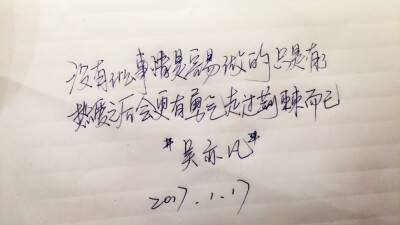 没有什么事情是容易做的 只是有了
热爱之后会更有勇气走过荆棘而已
"吴亦凡"
2017.1.17